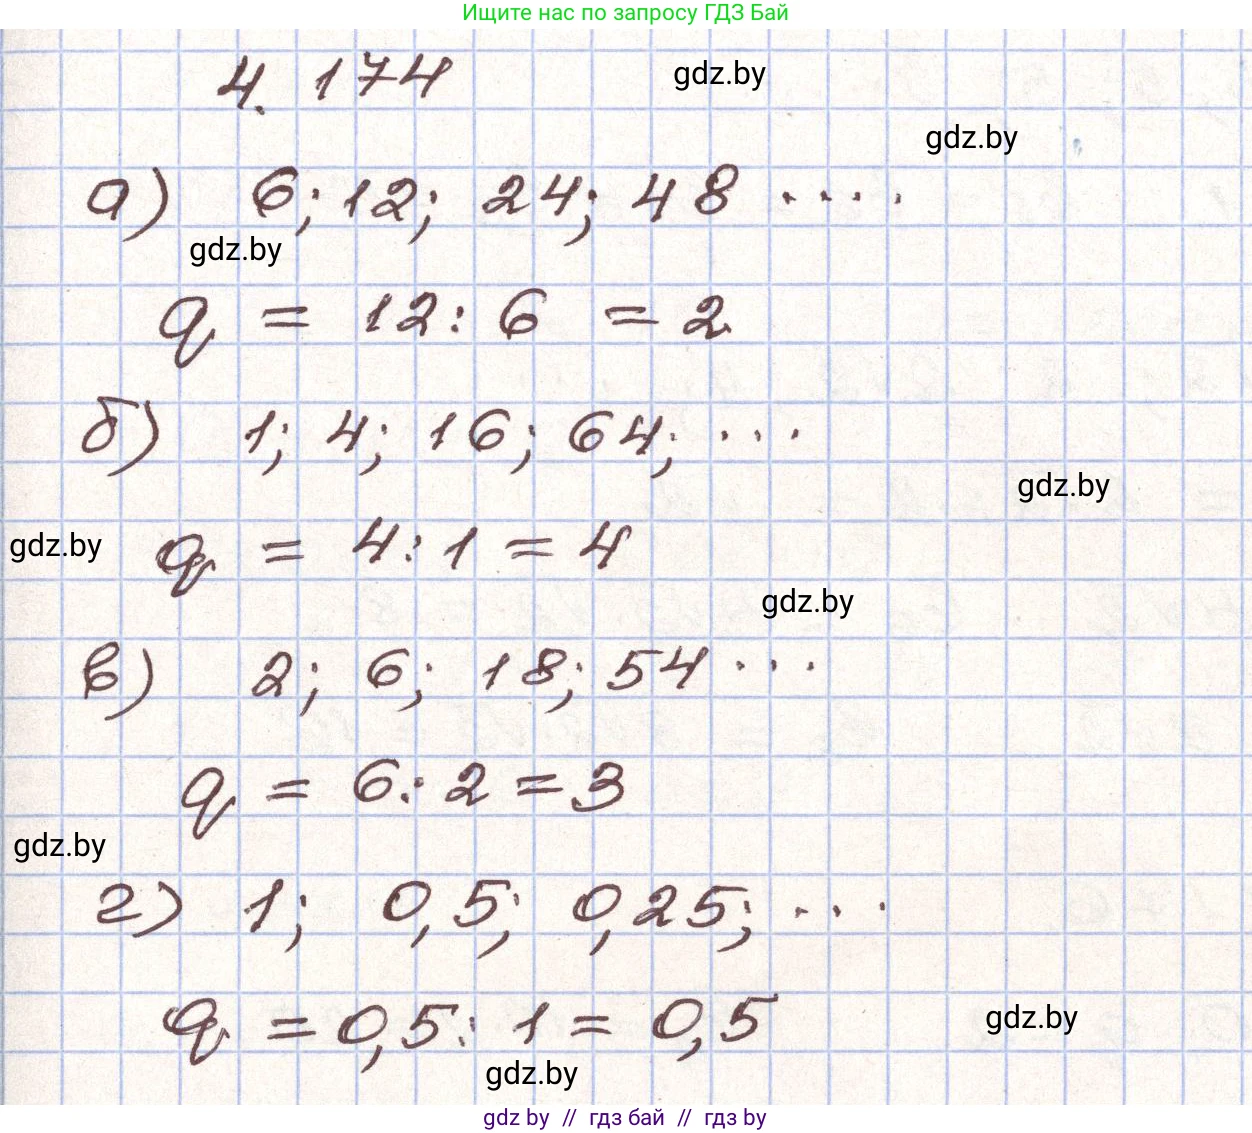 Ищите нас по запросу ГДЗ Бай
4. 174
gdz.by
gdz.by
а) 6; 12; 24; 48 ....
gdz.by
q = 12 : 6 = 2
б) 1; 4; 16; 64; ...
gdz.by
gdz.by
q = 4 : 1 = 4
gdz.by
в) 2; 6; 18; 54 ...
q = 6 : 2 = 3
gdz.by
г) 1; 0,5; 0,25; ...
q = 0,5 : 1 = 0,5
gdz.by
gdz.by
gdz by // гдз бай // гдз by